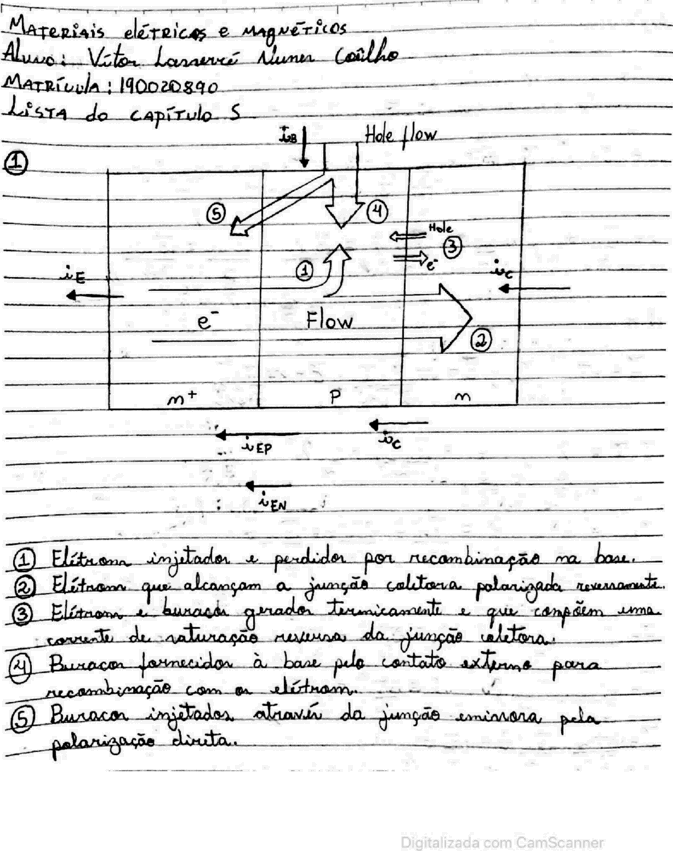 Materiais elétricos e magnéticos
Aluno: Vítor Lasserré Nunes Coêlho
Matrícula: 190020890
Lista do capítulo 5
1
iB
Hole flow
5
4
Hole
3
e-
1
iE
iC
e- Flow
2
n+ P n
iEP
iC
iEN
1 Elétrons injetados e perdidos por recombinação na base.
2 Elétrons que alcançam a junção coletora polarizada reversamente.
3 Elétrons e buracos gerados termicamente e que compõem uma
corrente de saturação reversa da junção coletora.
4 Buracos fornecidos à base pelo contato externo para
recombinação com os elétrons.
5 Buracos injetados através da junção emissora pela
polarização direta.
Digitalizada com CamScanner